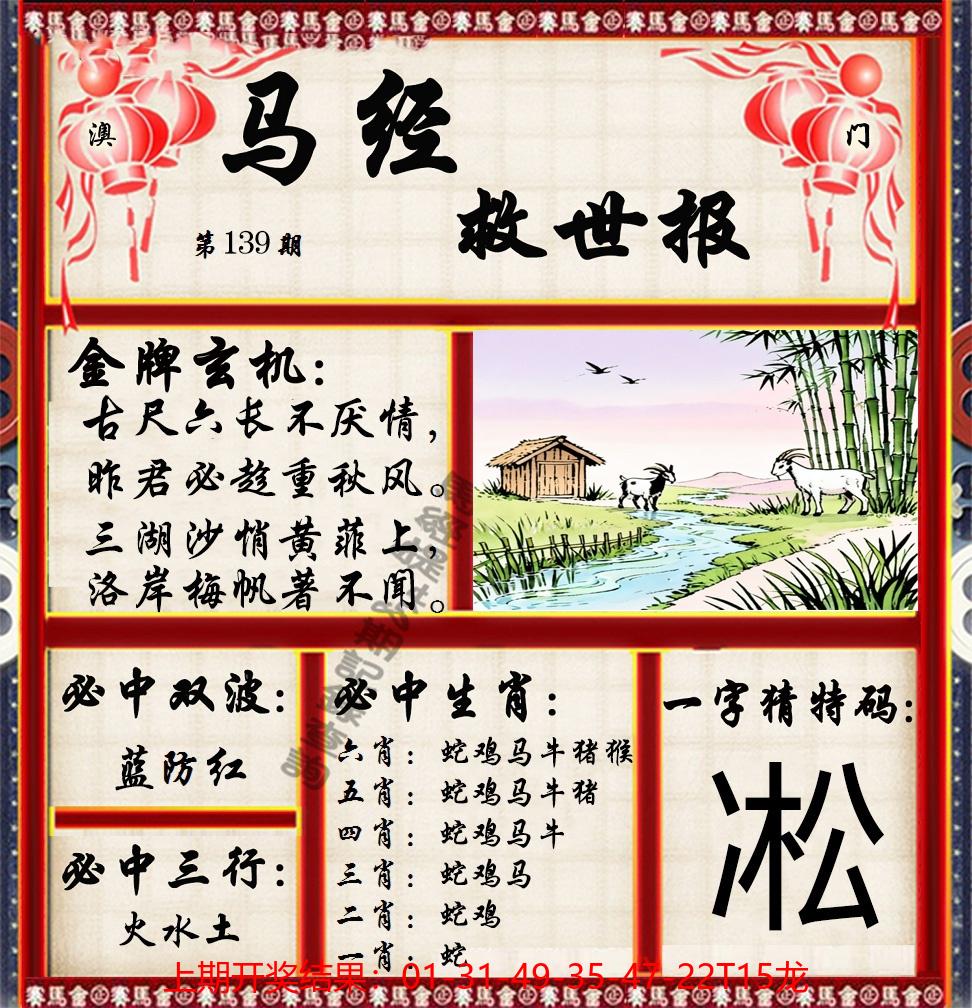 澳
门
马经
救世报
第139期
金牌玄机：
古尺六长不厌情，
昨君必趁重秋风。
三湖沙悄黄菲上，
洛岸梅帆著不闻。
必中双波：
蓝防红
必中三行：
火水土
必中生肖：
六肖：蛇鸡马牛猪猴
五肖：蛇鸡马牛猪
四肖：蛇鸡马牛
三肖：蛇鸡马
二肖：蛇鸡
一肖：蛇
一字猜特码：
凇
上期开奖结果：01-31-49-35-47-22T15龙